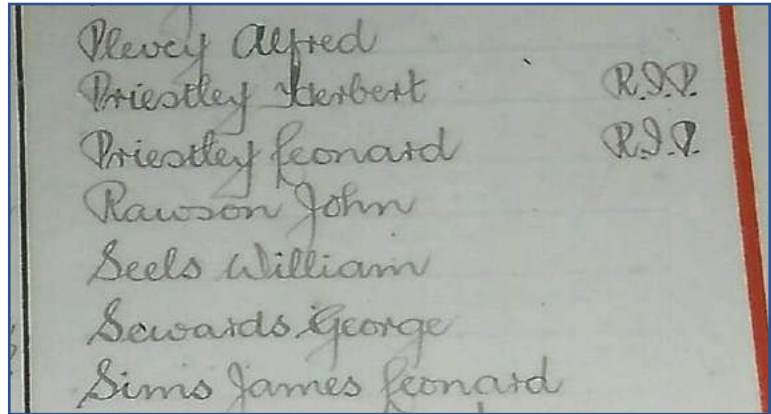 Plevey Alfred
Priestley Herbert R.I.P.
Priestley Leonard R.I.P.
Rawson John
Seels William
Sewards George
Sims James Leonard